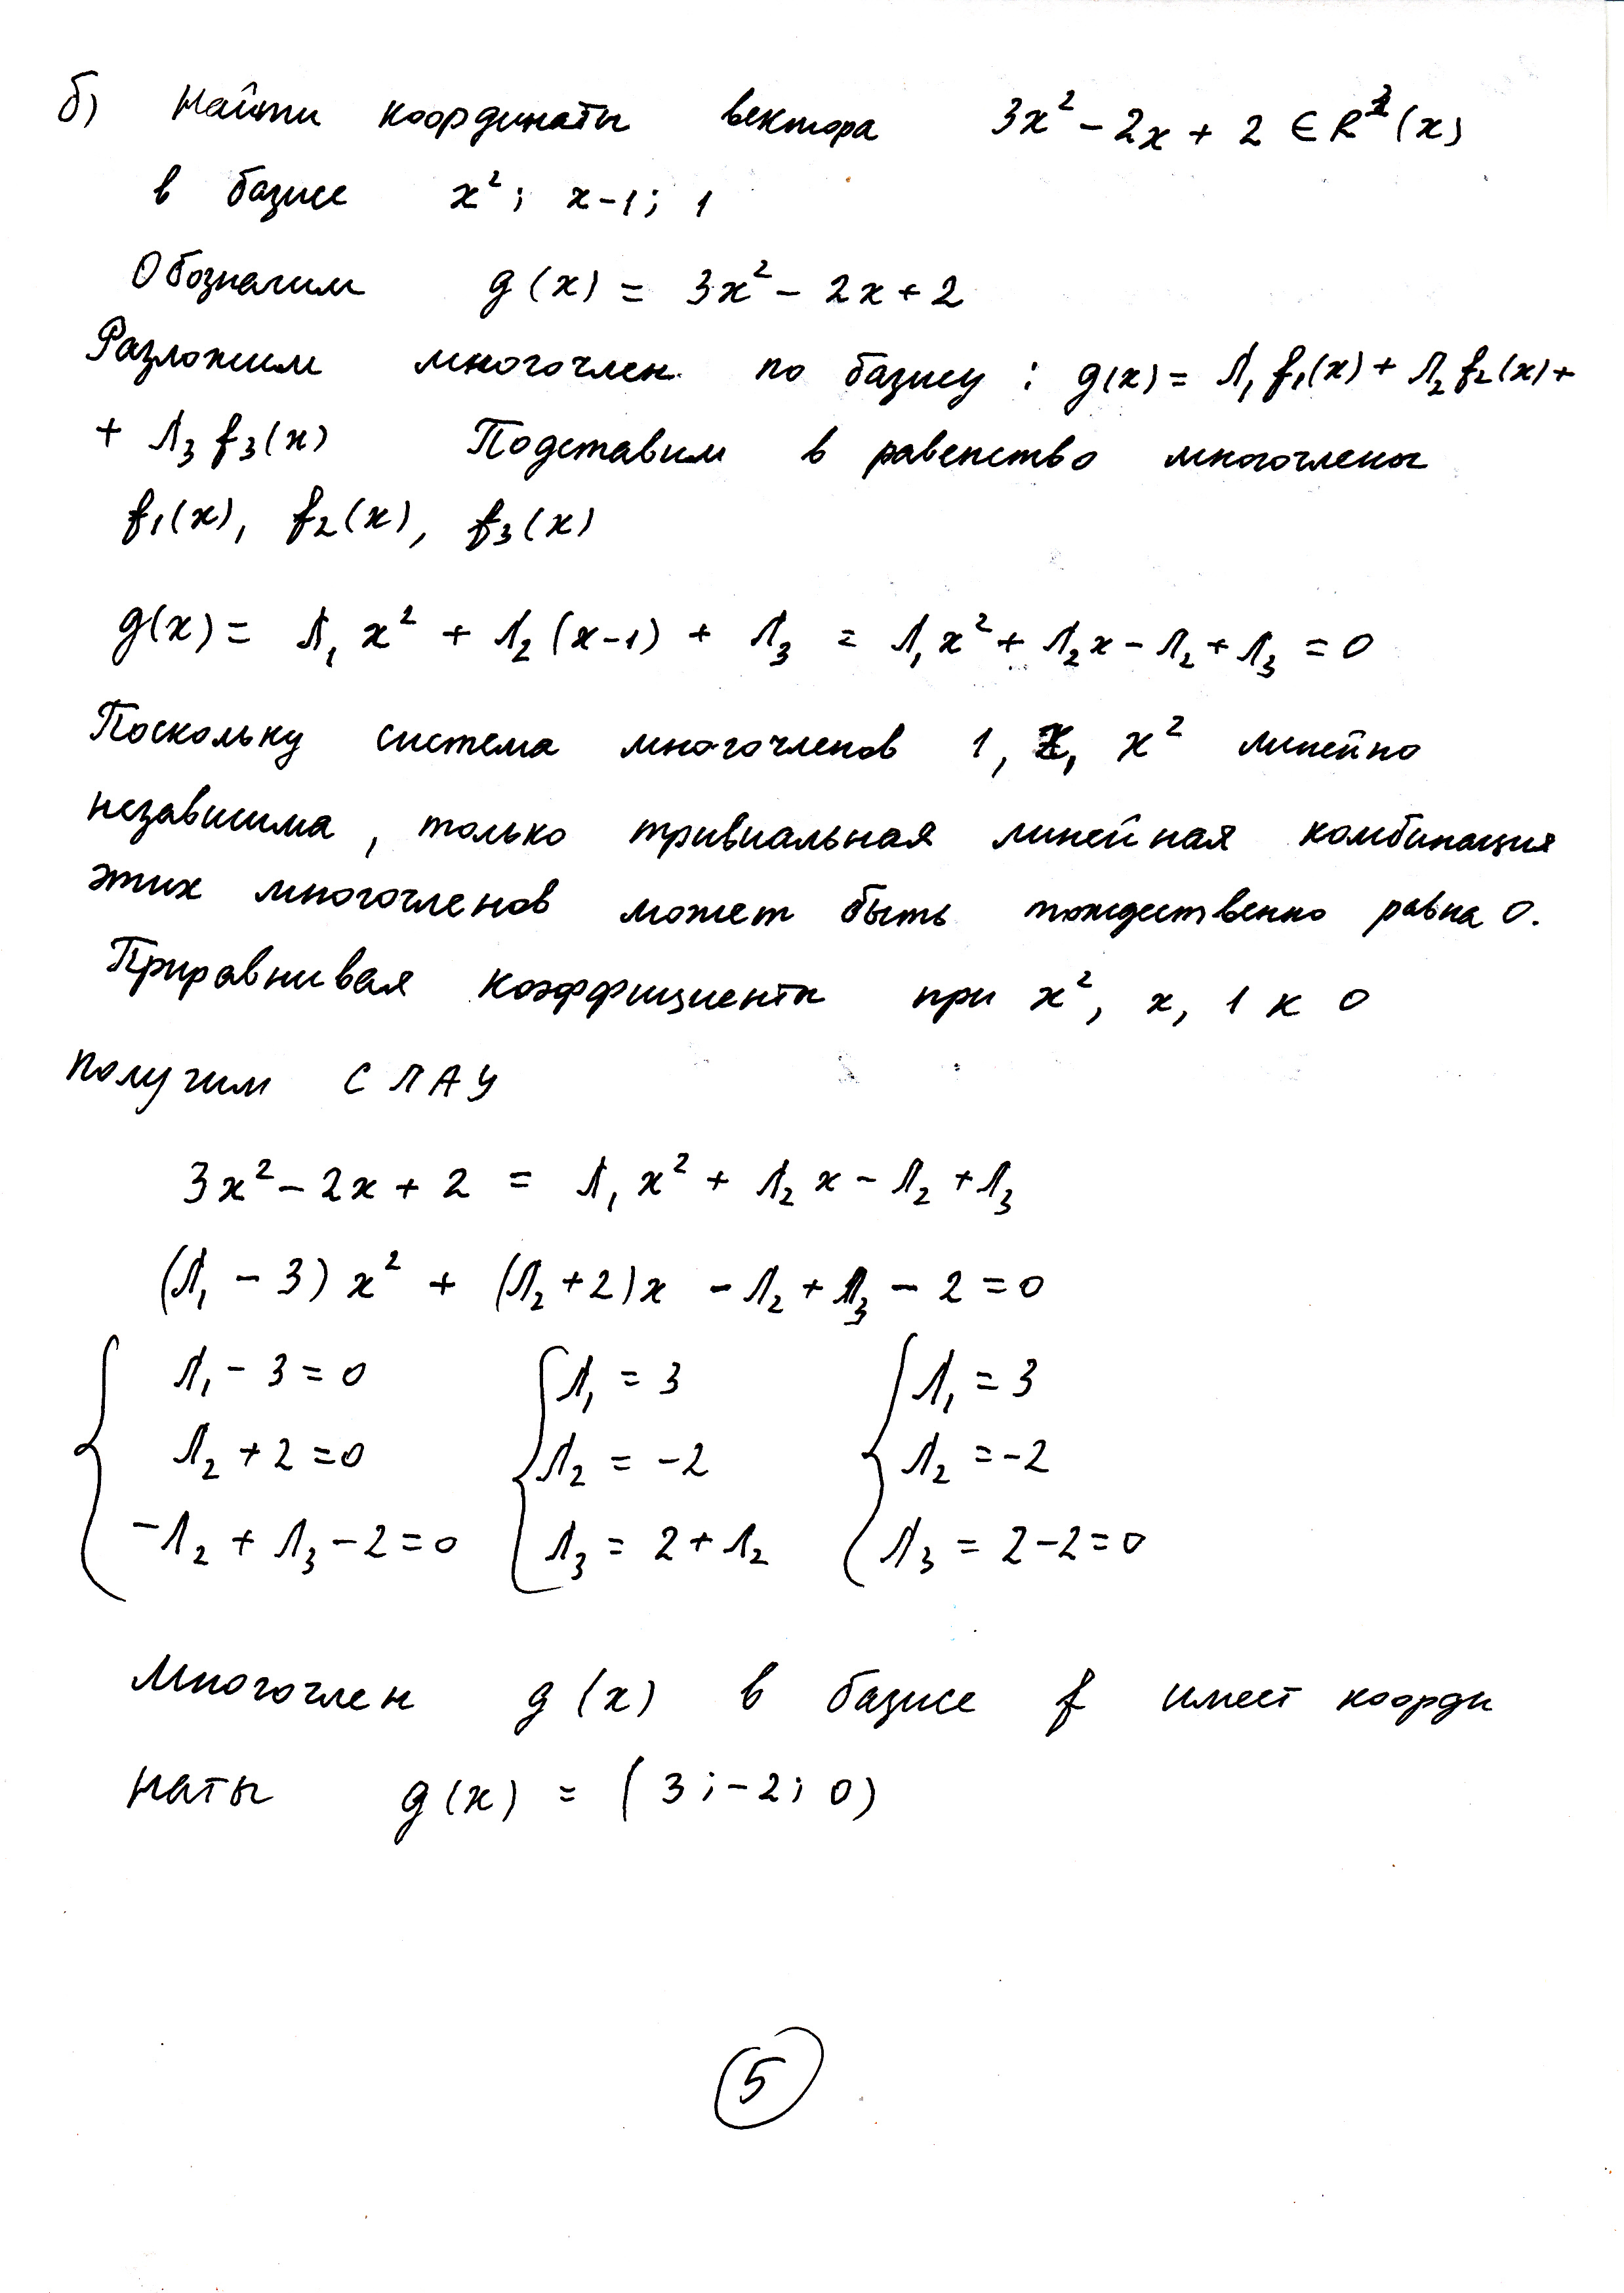 б) Найти координаты вектора 3x² - 2x + 2 ∈ R²(x)
в базисе x²; x-1; 1
Обозначим g(x) = 3x² - 2x + 2
Разложим многочлен по базису : g(x) = λ₁ f₁(x) + λ₂ f₂(x) +
+ λ₃ f₃(x) Подставим в равенство многочлены
f₁(x), f₂(x), f₃(x)
g(x) = λ₁ x² + λ₂ (x-1) + λ₃ = λ₁x² + λ₂x - λ₂ + λ₃ = 0
Поскольку система многочленов 1, x, x² линейно
независима, только тривиальная линейная комбинация
этих многочленов может быть тождественно равна 0.
Приравнивая коэффициенты при x², x, 1 к 0
получим СЛАУ
3x² - 2x + 2 = λ₁ x² + λ₂ x - λ₂ + λ₃
(λ₁ - 3) x² + (λ₂ + 2)x - λ₂ + λ₃ - 2 = 0
{ λ₁ - 3 = 0 { λ₁ = 3 { λ₁ = 3
λ₂ + 2 = 0 λ₂ = -2 λ₂ = -2
-λ₂ + λ₃ - 2 = 0 λ₃ = 2 + λ₂ λ₃ = 2 - 2 = 0
Многочлен g(x) в базисе f имеет коорди
наты g(x) = (3; -2; 0)
5